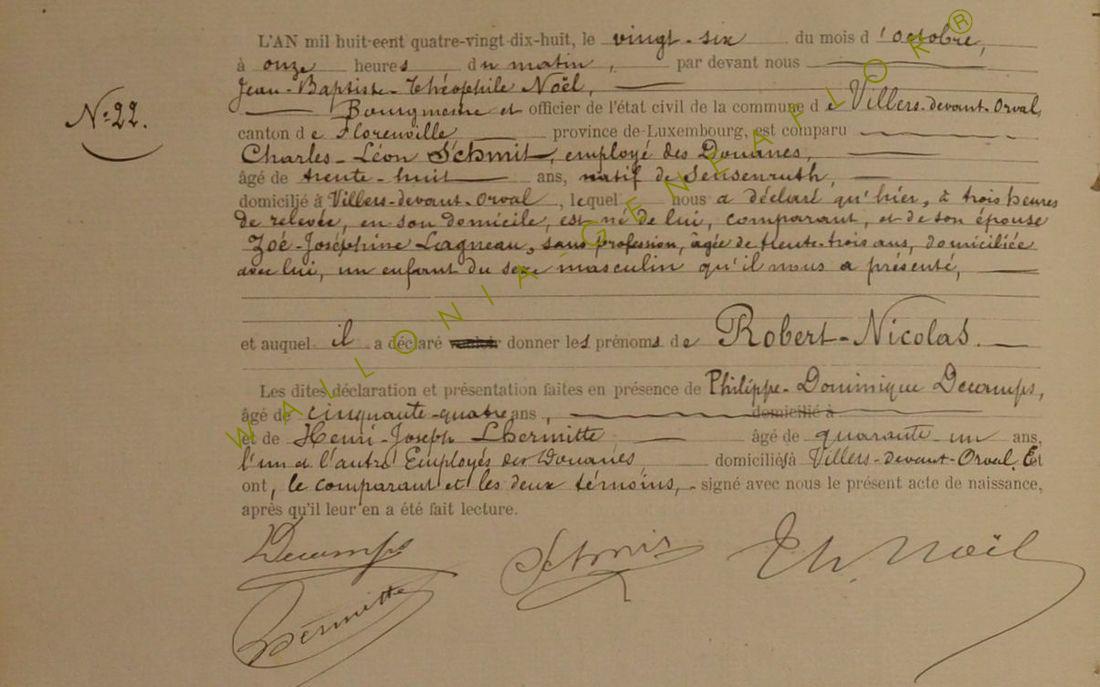 L'AN mil huit-cent quatre-vingt-dix-huit, le vingt-six du mois d'octobre,
à onze heures du matin, par devant nous
Jean-Baptiste-Théophile Noël,
Nº 22.
Bourgmestre et officier de l'état civil de la commune de Villers-devant-Orval,
canton de Florenville province de Luxembourg, est comparu
Charles-Léon Schmit, employé des Douanes,
âgé de trente-huit ans, natif de Sensenruth,
domicilié à Villers-devant-Orval, lequel nous a déclaré qu'hier, à trois heures
de relevée, en son domicile, est né de lui, comparant, et de son épouse
Zoé-Joséphine Lagneau, sans profession, agée de trente-trois ans, domiciliée
avec lui, un enfant du sexe masculin qu'il nous a présenté,
et auquel il a déclaré donner les prénoms de Robert-Nicolas.
Les dites déclaration et présentation faites en présence de Philippe-Dominique Decamps,
âgé de cinquante-quatre ans, domicilié à
et de Henri-Joseph Lhermitte, âgé de quarante-un ans,
l'un et l'autre Employés des Douanes, domiciliés à Villers-devant-Orval. Et
ont, le comparant et les deux témoins, signé avec nous le présent acte de naissance,
après qu'il leur en a été fait lecture.
Decamps Schmit Th. Noël
Lhermitte
WALLONIA GENEAPLOK ®